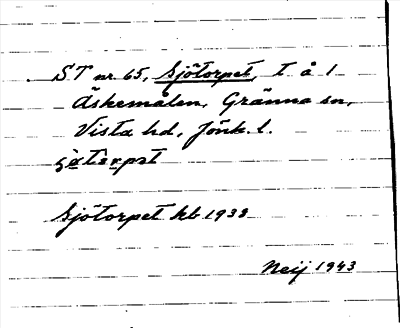 ST nr 65, Sjötorpet, t å 1
Äskemålen, Gränna sn,
Vista hd, Jönk. l.
sjötorpet hb 1933
Neij 1943